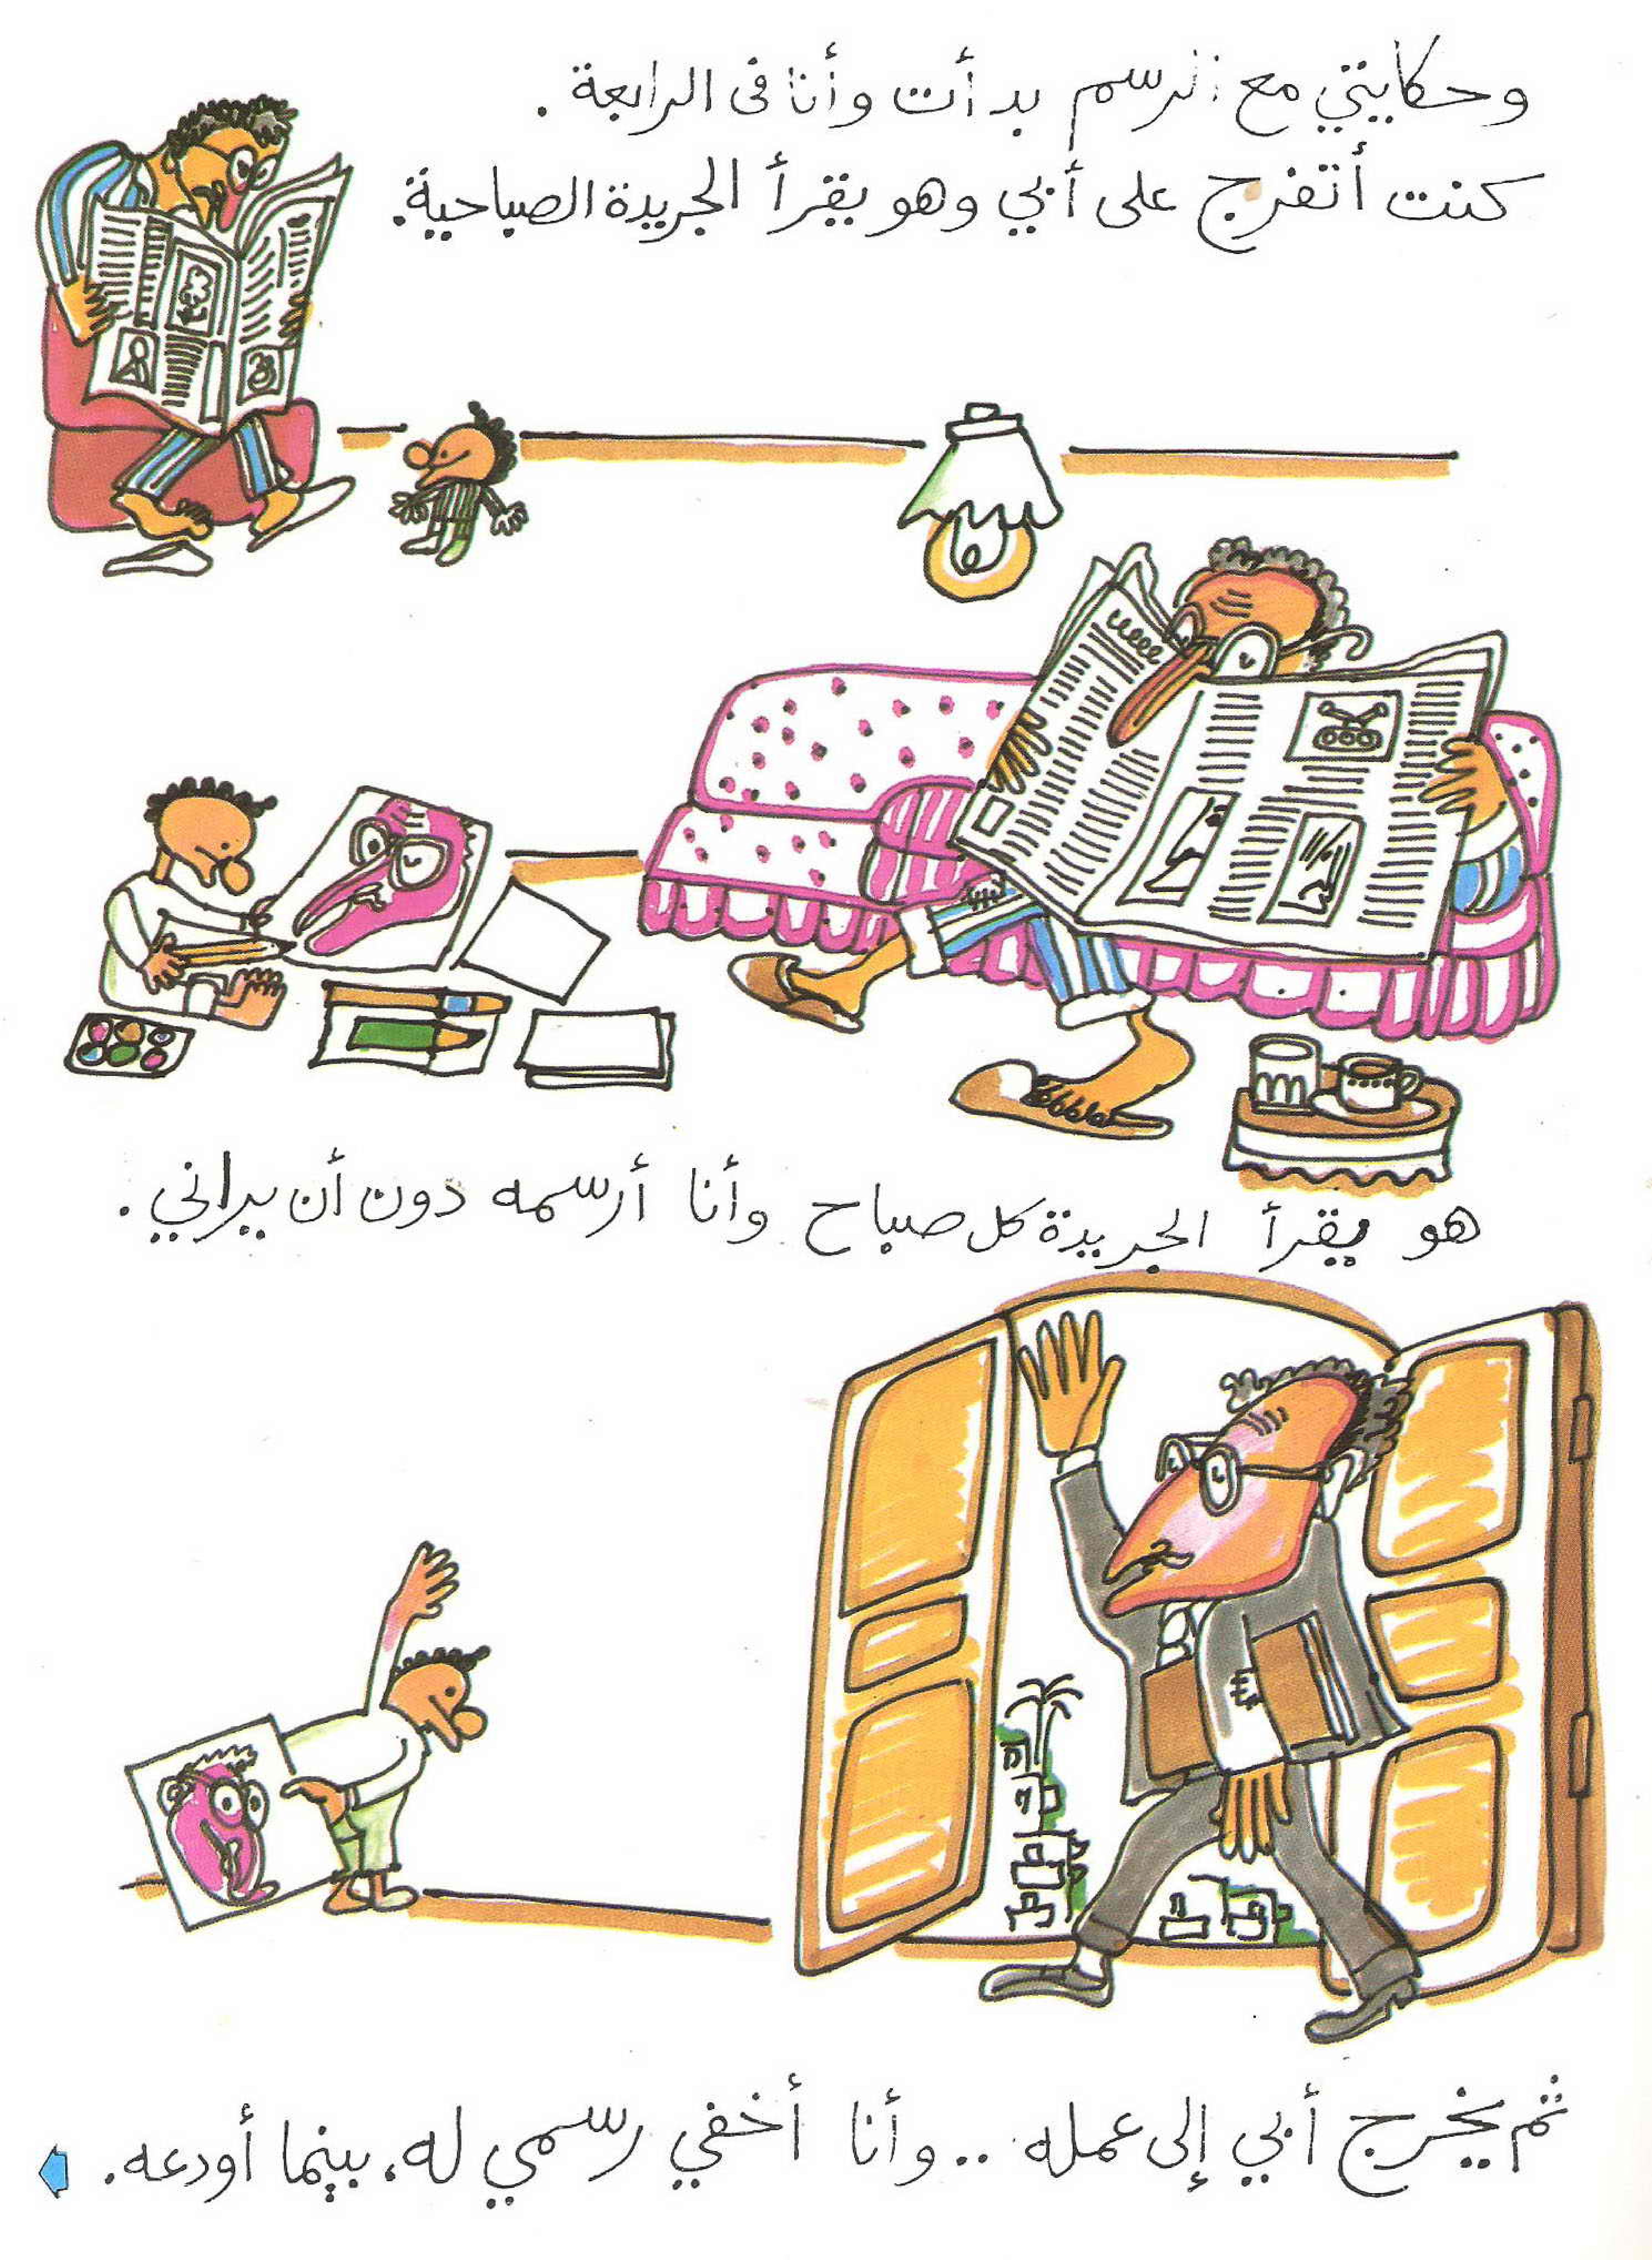 وحكايتي مع الرسم بدأت وأنا فى الرابعة .
كنت أتفرج على أبي وهو يقرأ الجريدة الصباحية.
هو يقرأ الجريدة كل صباح وأنا أرسمه دون أن يراني .
ثم يخرج أبي إلى عمله .. وأنا أخفي رسمي له، بينما أودعه .